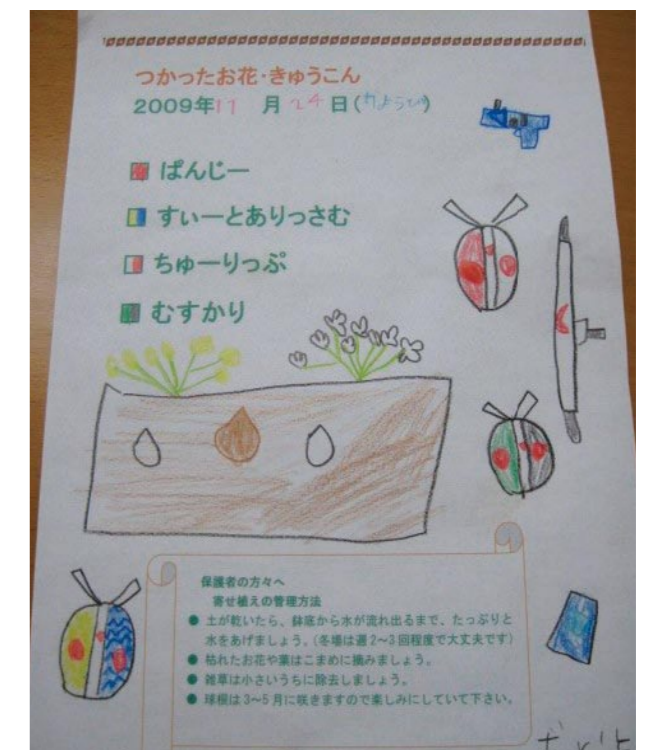 つかったお花・きゅうこん
2009年11月24日(かようび)
ぱんじー
すぃーとありっさむ
ちゅーりっぷ
むすかり
保護者の方々へ
寄せ植えの管理方法
● 土が乾いたら、鉢底から水が流れ出るまで、たっぷりと
水をあげましょう。(冬場は週2~3回程度で大丈夫です)
● 枯れたお花や葉はこまめに摘みましょう。
● 雑草は小さいうちに除去しましょう。
● 球根は3~5月に咲きますので楽しみにしていて下さい。